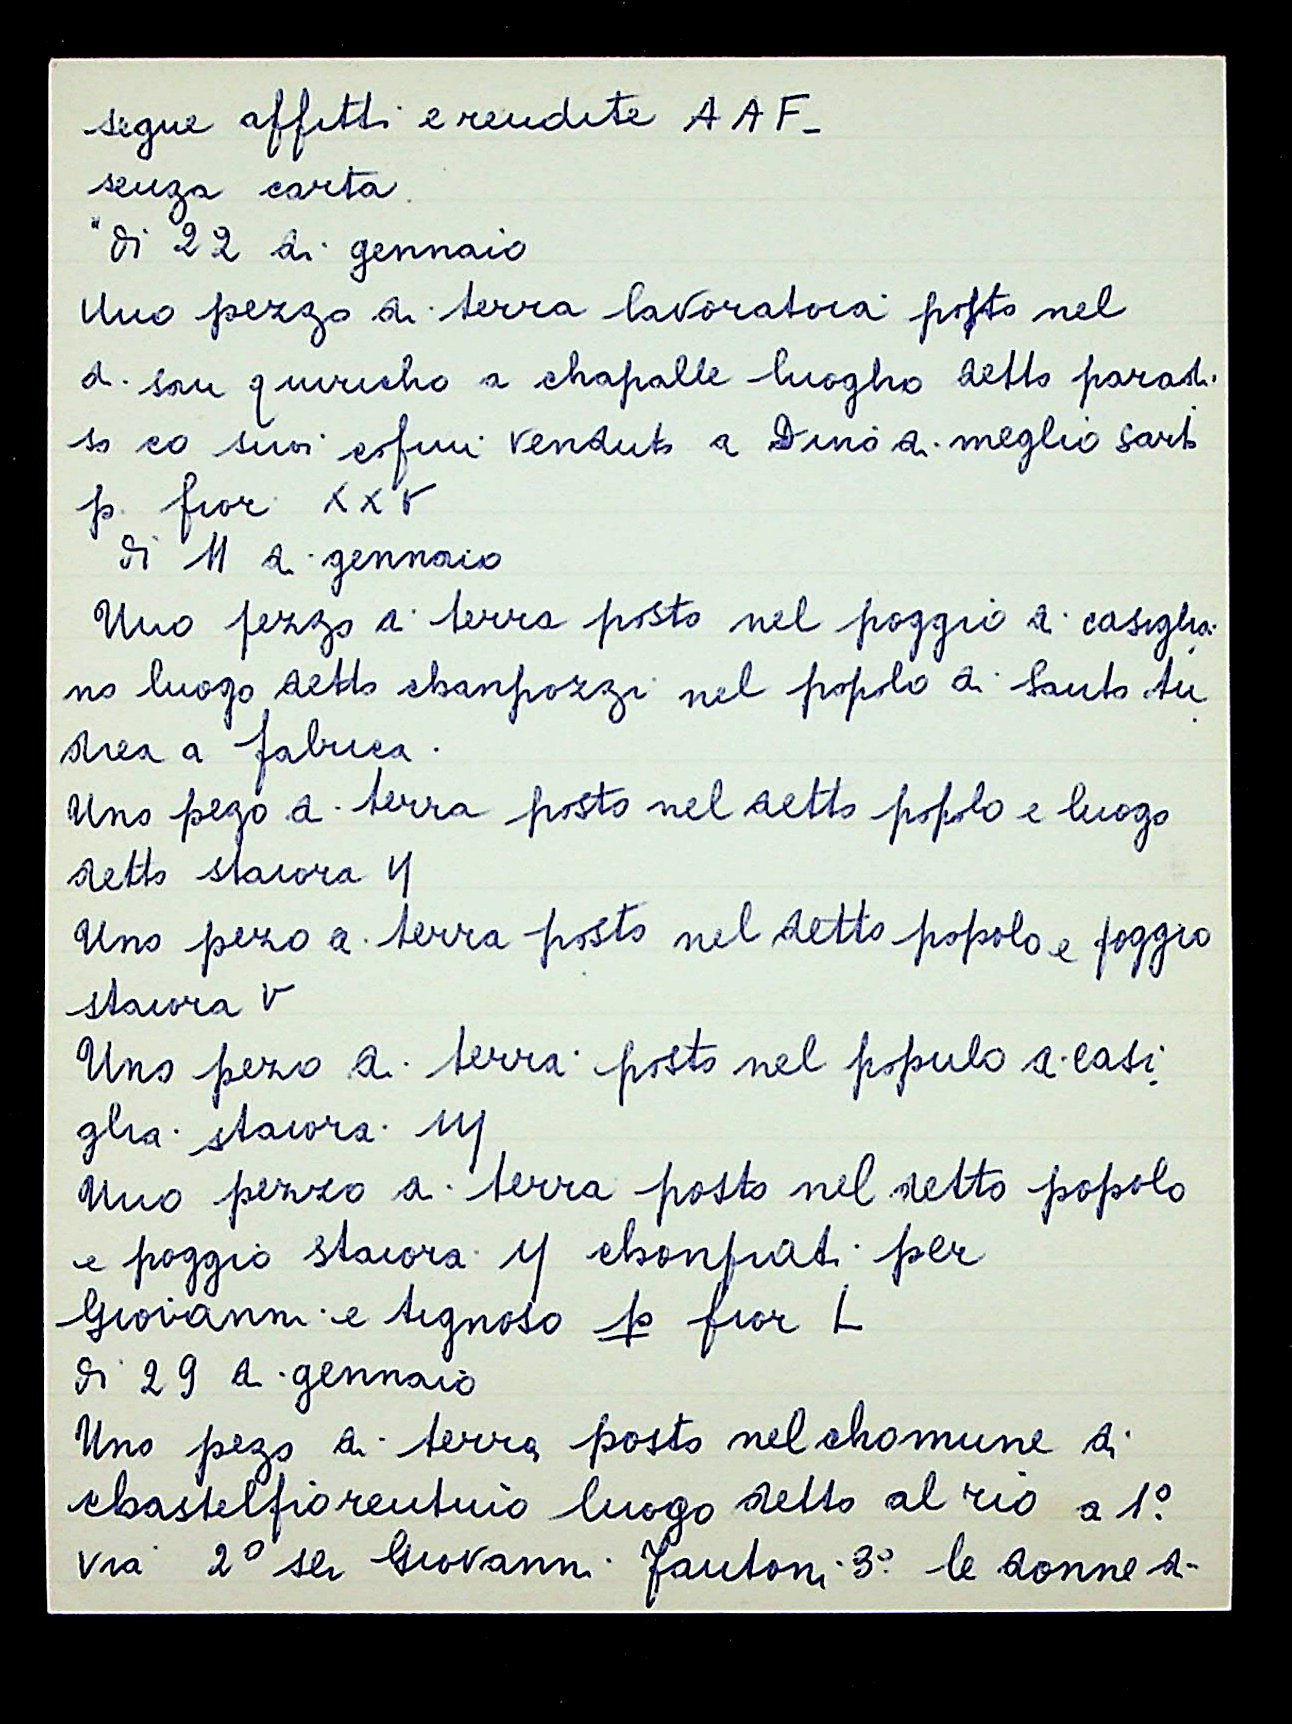 segue affitti e rendite A A F_
senza carta
"di 22 di gennaio
Uno pezzo di terra lavoratoia posto nel
di san quiricho a chapalle luogho detto paradi-
so co suoi cofini venduto a Dino di meglio sarto
p. fior XXV
di 11 di gennaio
Uno pezzo di terra posto nel poggio di casiglia-
no luogo detto chanpozzi nel popolo di Santo An
drea a fabrica.
Uno pezo di terra posto nel detto popolo e luogo
detto staiora ij
Uno pezo di terra posto nel detto popolo e poggio
staiora V
Uno pezo di terra posto nel populo di casi-
glia. staiora. iiij
Uno pezzo di terra posto nel detto popolo
e poggio staiora ij chonprati per
Giovanni e tignoso p fior L
di 29 di gennaio
Uno pezo di terra posto nel chomune di
chastelfiorentino luogo detto al rio a 1º.
via 2º ser Giovanni Fantoni 3º. le donne di